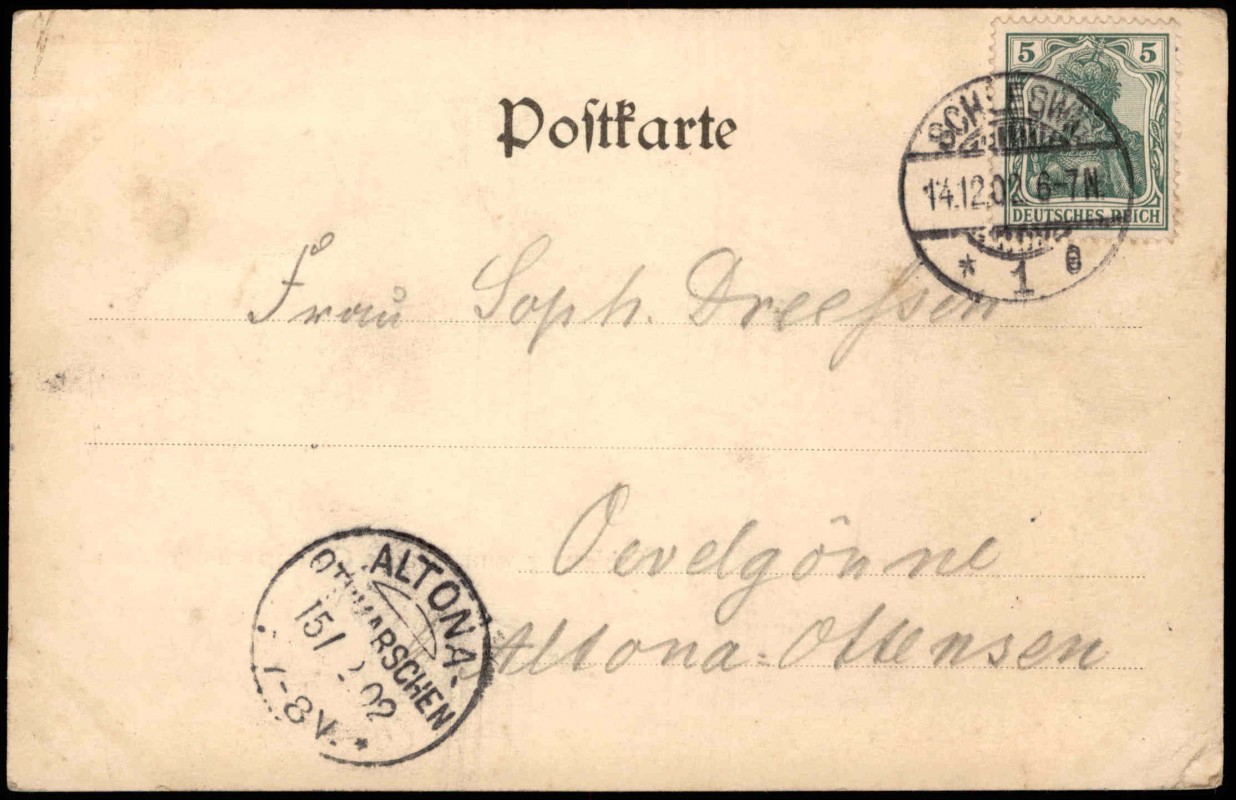 5 5
DEUTSCHES REICH
Postkarte
SCHLESWIG
14.12.02 6-7N.
* 1 e
Frau Soph. Dreeßsen
Oevelgönne
Altona-Ottensen
ALTONA-
OTHMARSCHEN
15/ 2.02
7-8V. *